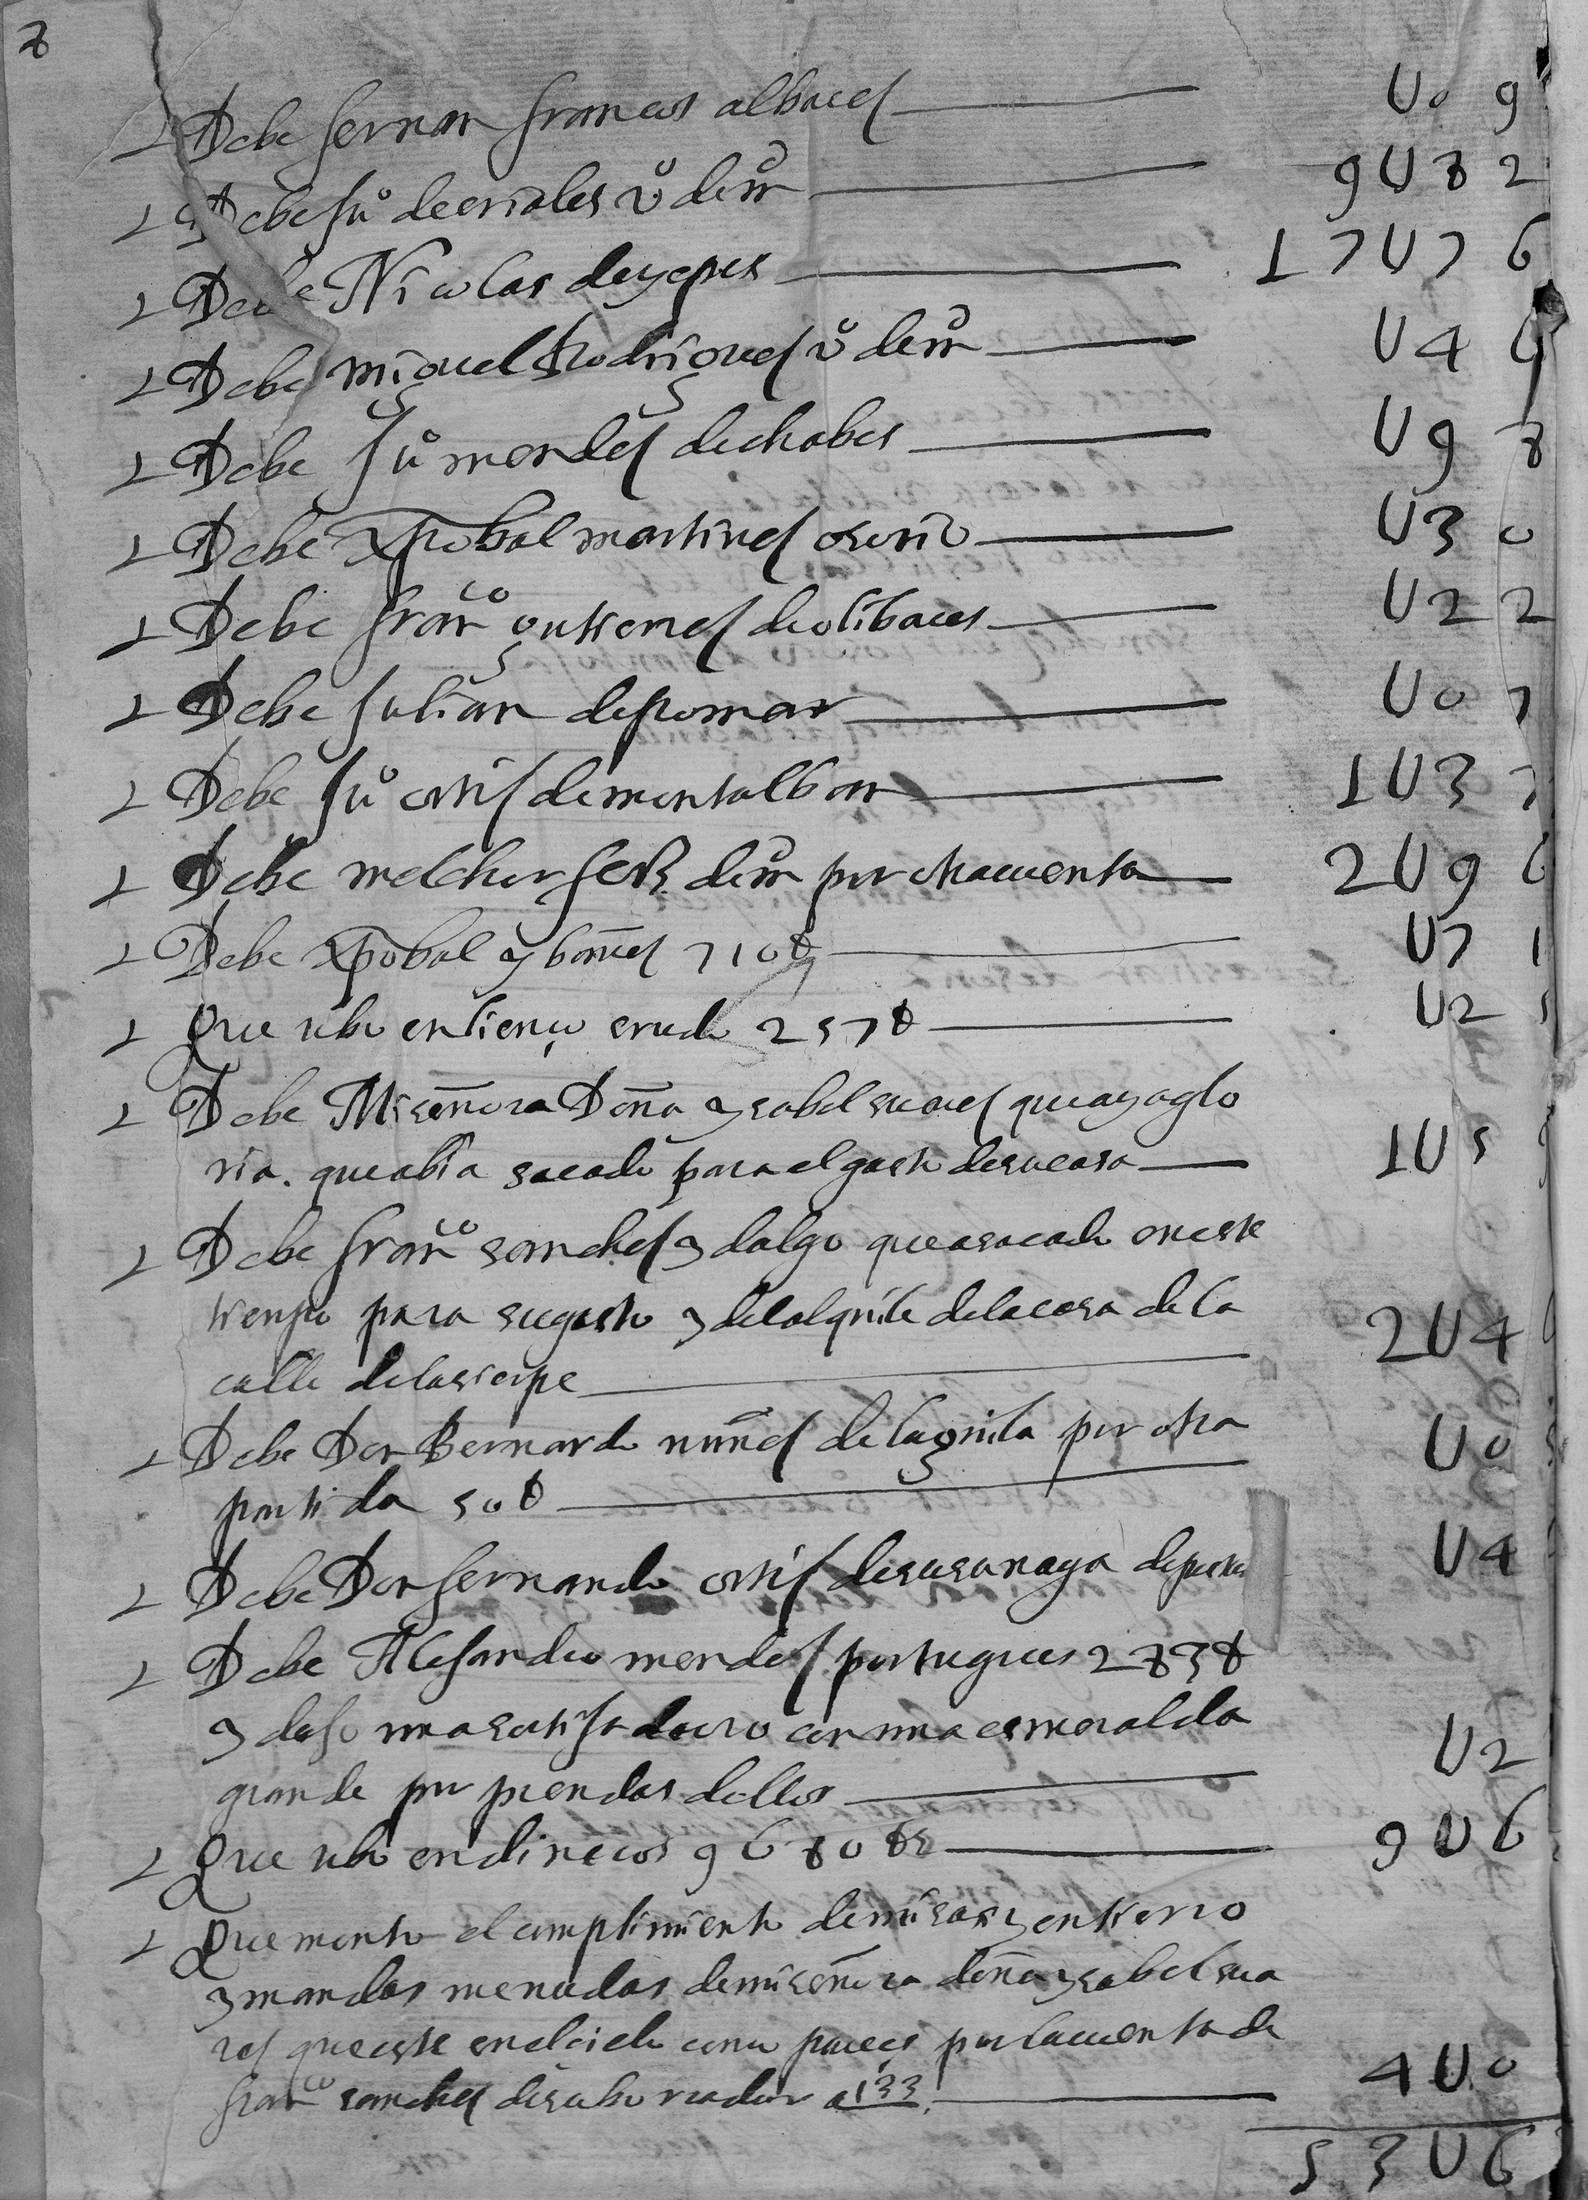 8
Debe fernan franco albarez U0 9
Debe Juº de criales vº de m 9U82
Debe Nicolas de yepes 17U76
Debe miguel Rodriguez vº de m U4 6
Debe Juº mendez de chabes U9 8
Debe xpobal martinez osorio U3 0
Debe franco gutierrez de olibares U22
Debe Julian de pomar U0 7
Debe Juº ortiz de montalban 1U3 7
Debe melchor ferz de m por otra cuenta 2U9 6
Debe xpobal ybanez 710 U7 1
Que ubo en lienço crudo 257 U2 5
Debe Mi señora Doña ysabel suarez que aya glo
ria. que abia sacado para el gasto de su casa 1U5
Debe franco sanchez ydalgo que a sacado en este
tiempo para su gasto y del alquile de la casa de la
calle de la sierpe 2U4
Debe Don Bernardo nuñez del aguila por otra
partida 50 U0
Debe Don fernando ortiz de susunaga de resto U4
Debe Alexandro mendez portugues 283
y dejo una sortija de oro con una esmeralda
grande por prendas dellos U2
Que ubo en dineros 9680 9U6
Que monto el cumplimiento de misas y entierro
y mandas menudas de mi señora doña ysabel sua
rez que este en el cielo como parece por la cuenta de
franco sanchez de su borrador a 133. 4U0
53U6